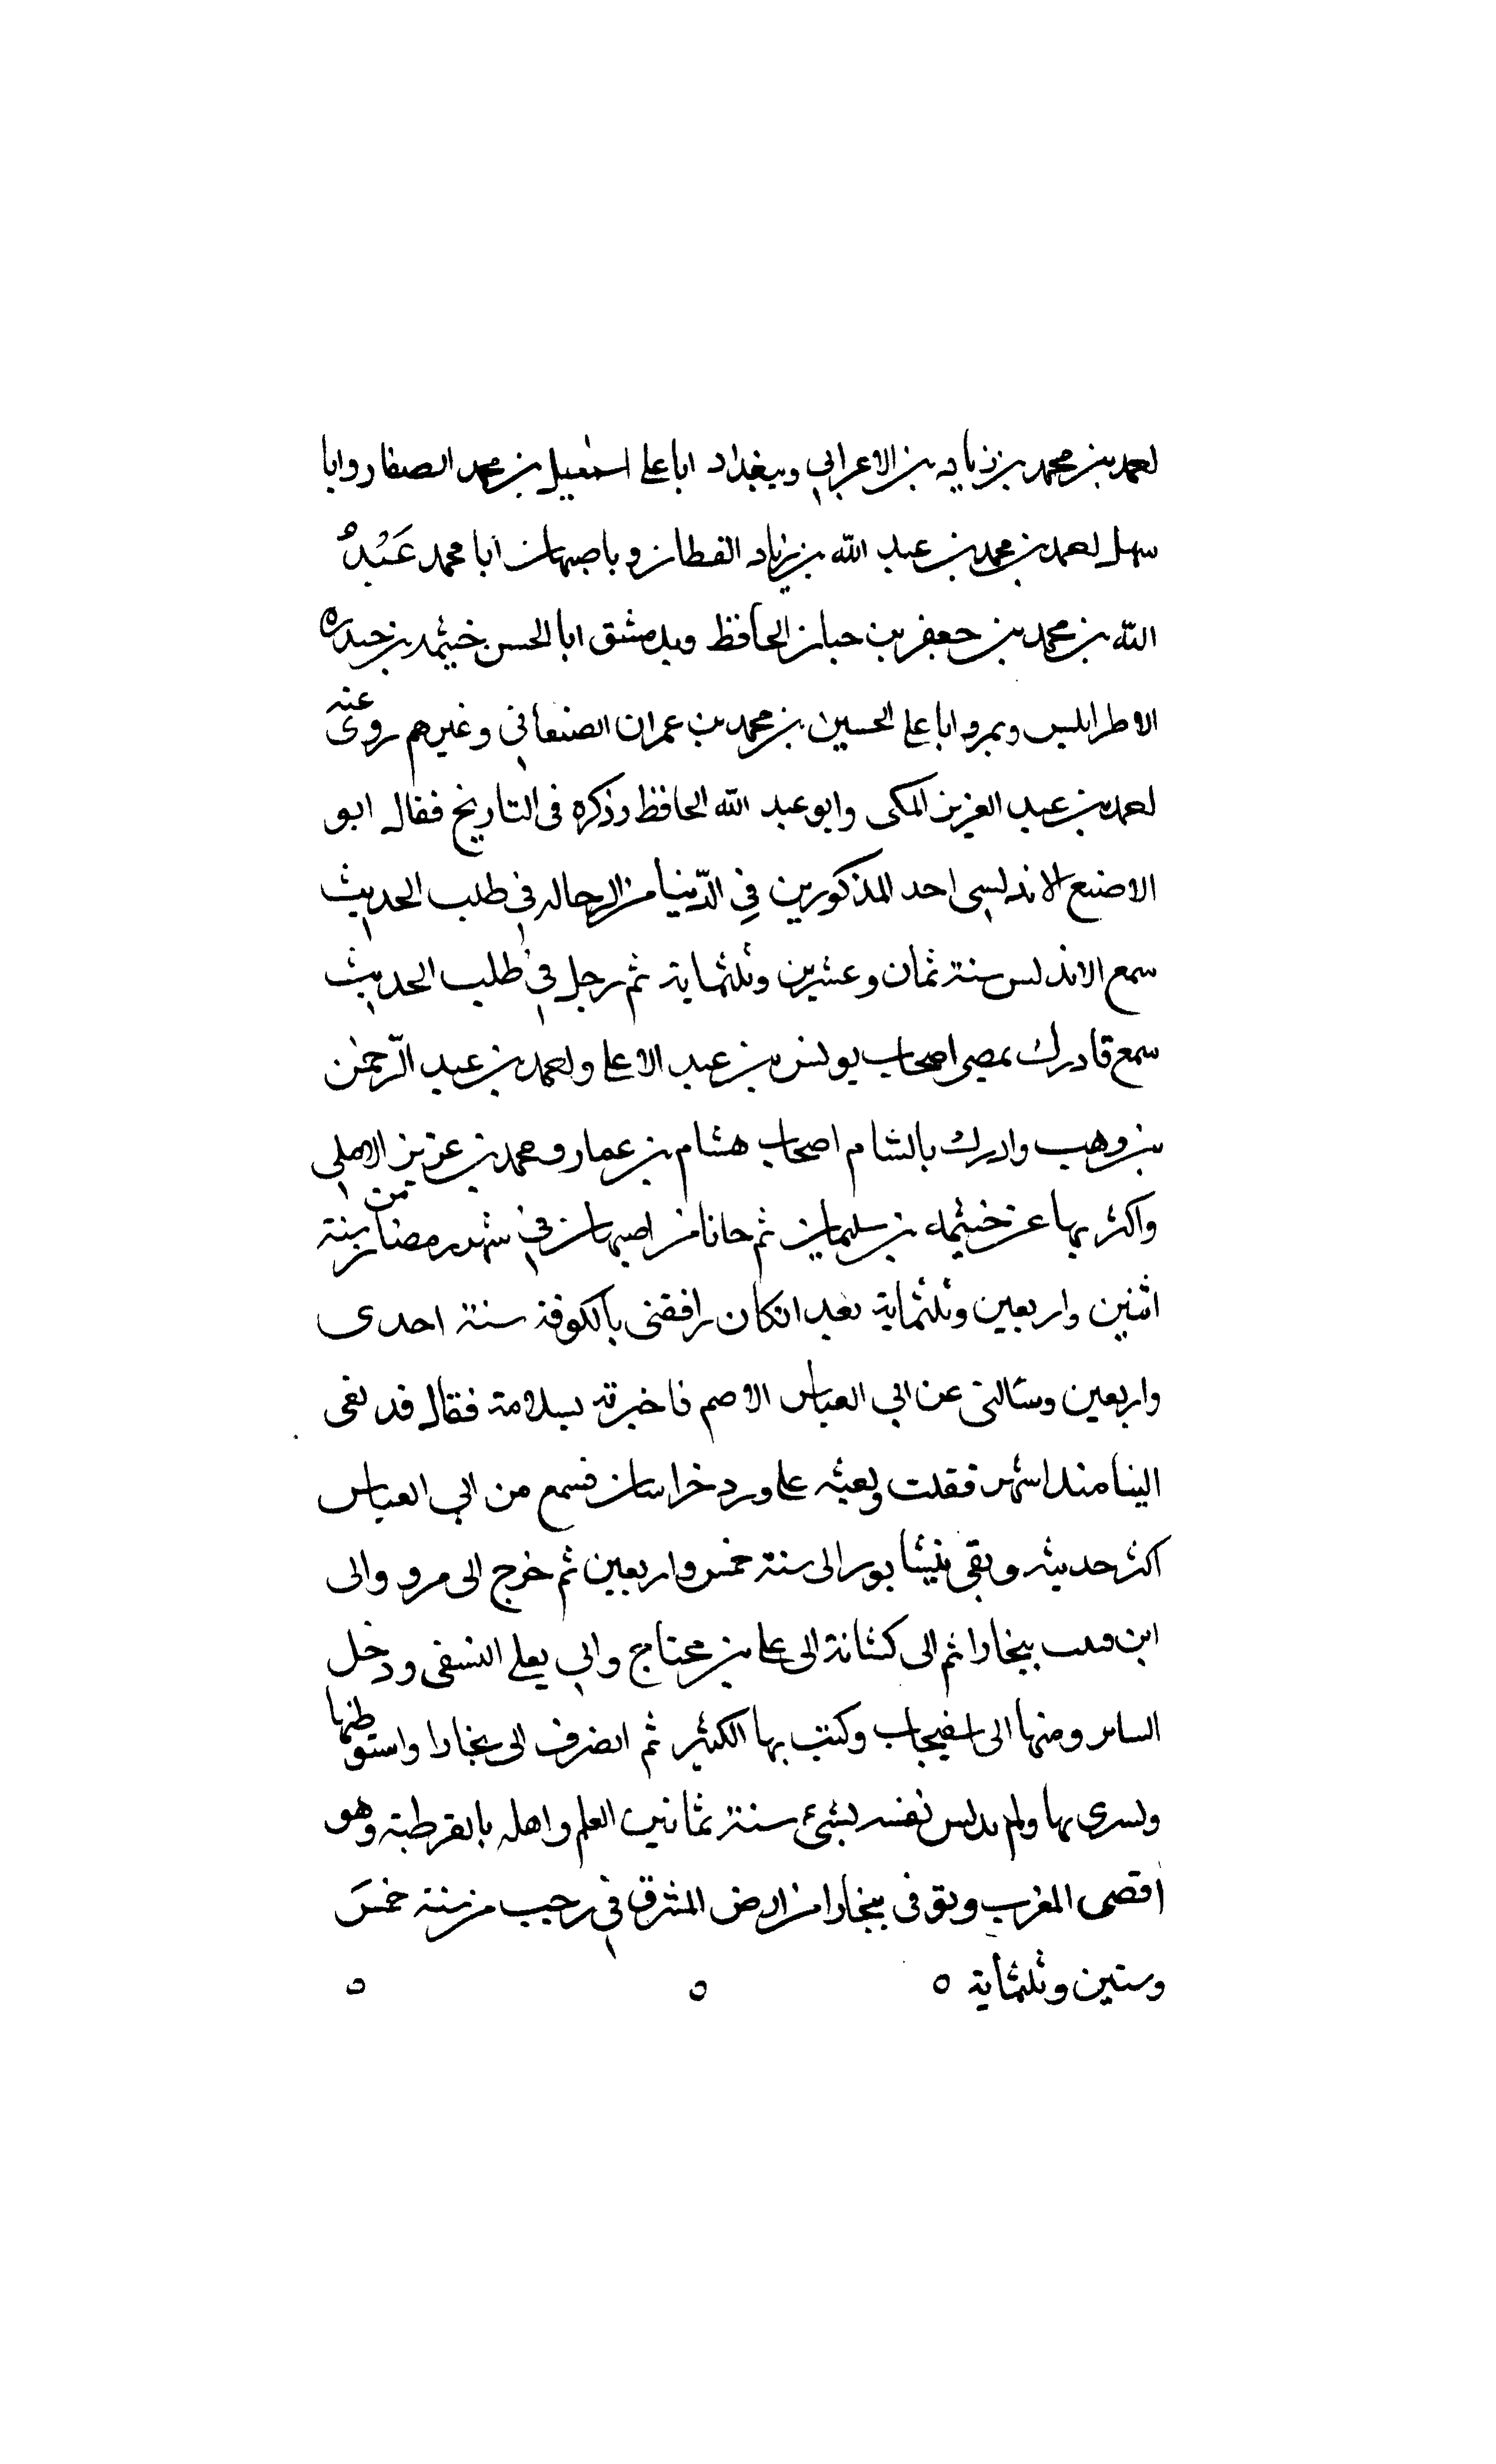 احمد بن محمد بن زياد بن الاعرابي وببغداد ابا علي اسمعيل بن محمد الصفار وابا
سهل احمد بن محمد بن عبد الله بن زياد القطان وباصبهان ابا محمد عَبْدُ
الله بن محمد بن جعفر بن حبان الحافظ وبدمشق ابا الحسن خيثمه بن حيدره
الاطرابلسي وبمرو ابا علي الحسين بن محمد بن عمران الصنعاني وغيرهم روى عنه
احمد بن عبد العزيز المكى وابو عبد الله الحافظ وذكره فى التاريخ فقال ابو
الاصبع الاندلسى احد المذكورين فِي الدّنيا من الرحاله في طلب الحديث
سمع الاندلس سنة ثمان وعشرين وثلثماية ثم رحل في طلب الحديث
سمع فادرك بمصر اصحاب يونس بن عبد الاعلى واحمد بن عبد الرّحمن
بن وهب وادرك بالشام اصحاب هشام بن عمار ومحمد بن عزيز الايلي
واكثر بها عن خيثمه بن سليمان ثم جانا من اصبهان في شهر رمضان من سنة
اثنين واربعين وثلثماية بعد ان كان رافقنى بالكوفة سنة احدى
واربعين وسالنى عن ابي العباس الاصم فاخبرته بسلامة فقال قد نعى
الينا منذ اشهر فقلت ولعبثه علي ورد خراسان فسمع من ابي العباس
اكثر حديثه وبقى بنيسابور الى سنة خمس واربعين ثم خرج الى مرو والى
ابن بخارا ثم الى كشانة الى علي بن محتاج وابي يعلي النسفى ودخل
ومنها الى اسفيجاب وكتب بها الكثير ثم انصرف الى بخارا واستوطنها
وتسرى بها ولم يدلس نفسه بشيء سنة ثمانين العلم واهله بالقرطبة وهو
اقصى المغرب وتوفى ببخارا من ارض المشرق في رجب من سنة خمسَ
وستين وثلثماية ٥ ٥ ٥